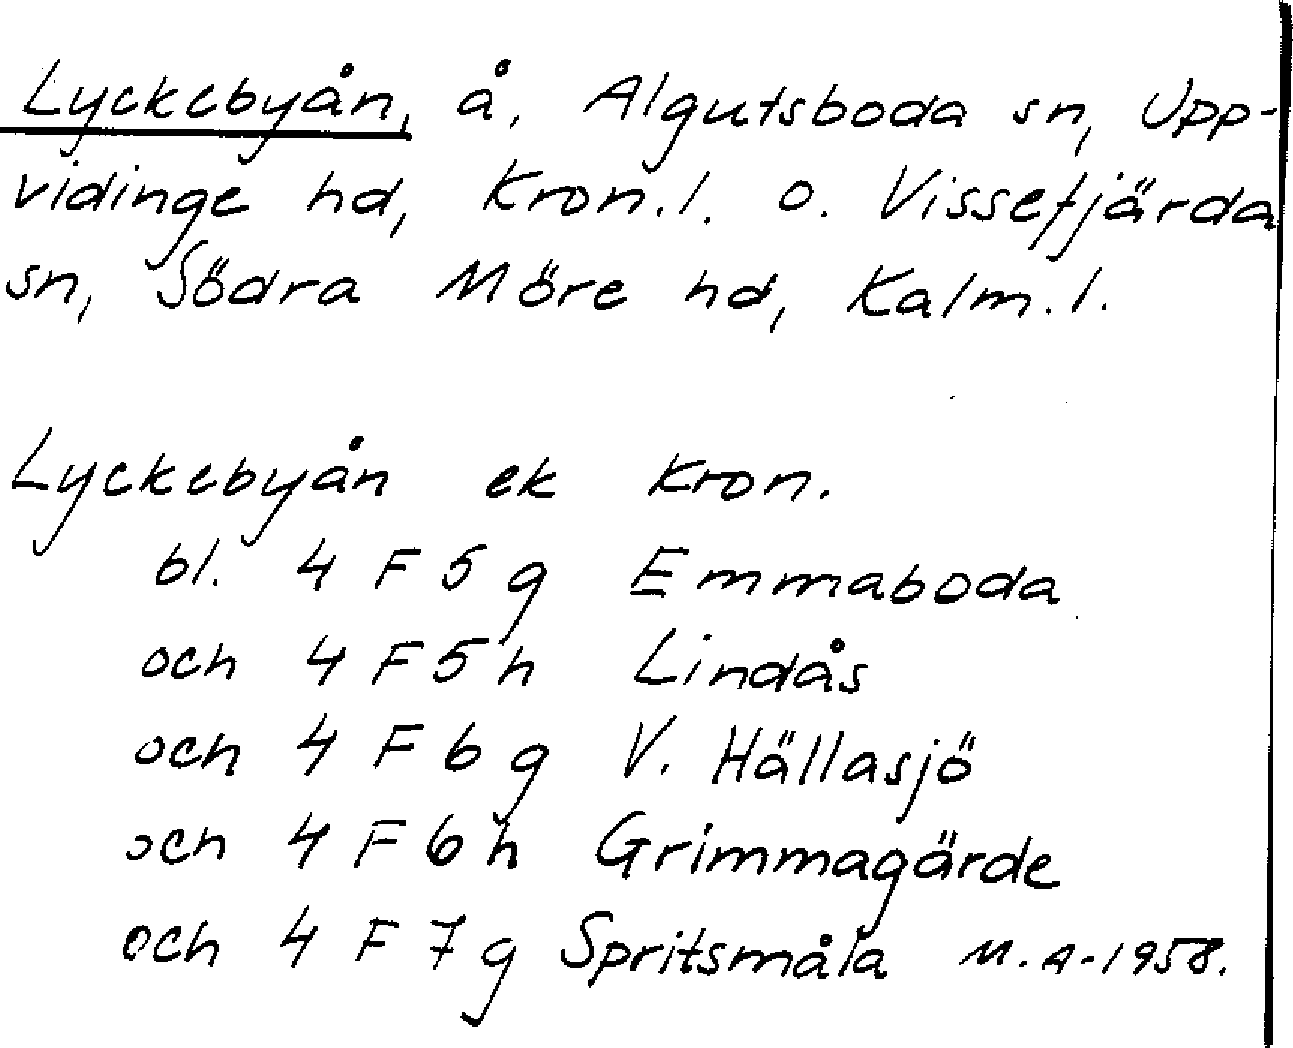 Lyckebyån, å, Algutsboda sn, Upp-
vidinge hd, Kron.l. o. Vissefjärda
sn, Södra Möre hd, Kalm.l.
Lyckebyån ek Kron.
bl. 4 F 5 g Emmaboda
och 4 F 5 h Lindås
och 4 F 6 g V. Hällasjö
och 4 F 6 h Grimmagärde
och 4 F 7 g Spritsmåla M.A-1958.